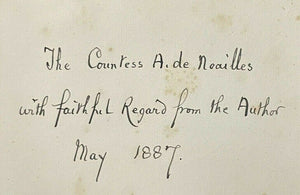 The Countess A. de Noailles
with faithful Regard from the Author
May 1887.